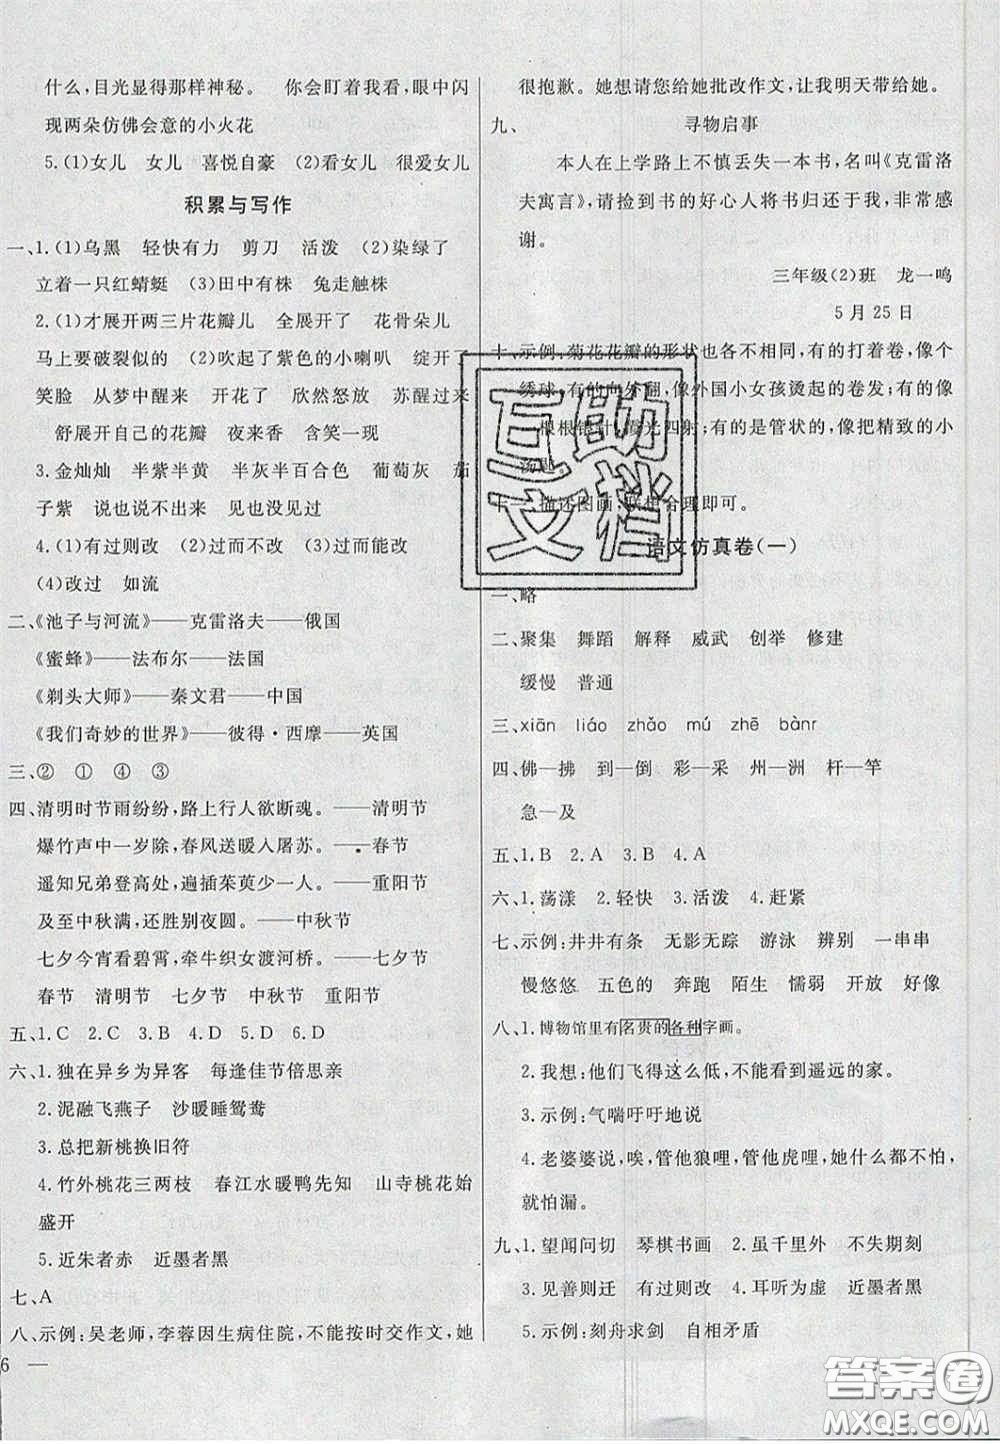 什么,目光显得那样神秘。 你会盯着我看,眼中闪
现两朵仿佛会意的小火花
5.(1)女儿 女儿 喜悦自豪 (2)看女儿 很爱女儿
积累与写作
一、1.(1)乌黑 轻快有力 剪刀 活泼 (2)染绿了
立着一只红蜻蜓 (3)田中有株 兔走触株
2.(1)才展开两三片花瓣儿 全展开了 花骨朵儿
马上要破裂似的 (2)吹起了紫色的小喇叭 绽开了
笑脸 从梦中醒来 开花了 欣然怒放 苏醒过来
舒展开自己的花瓣 夜来香 含笑一现
3.金灿灿 半紫半黄 半灰半百合色 葡萄灰 茄
子紫 说也说不出来 见也没见过
4.(1)有过则改 (2)过而不改 (3)过而能改
(4)改过 如流
二、《池子与河流》——克雷洛夫——俄国
《蜜蜂》——法布尔——法国
《剃头大师》——秦文君——中国
《我们奇妙的世界》——彼得·西摩——英国
三、② ① ④ ③
四、清明时节雨纷纷,路上行人欲断魂。——清明节
爆竹声中一岁除,春风送暖入屠苏。——春节
遥知兄弟登高处,遍插茱萸少一人。——重阳节
及至中秋满,还胜别夜圆。——中秋节
七夕今宵看碧霄,牵牛织女渡河桥。——七夕节
春节 清明节 七夕节 中秋节 重阳节
五、1.C 2.C 3.D 4.D 5.D 6.D
六、1.独在异乡为异客 每逢佳节倍思亲
2.泥融飞燕子 沙暖睡鸳鸯
3.总把新桃换旧符
4.竹外桃花三两枝 春江水暖鸭先知 山寺桃花始
盛开
5.近朱者赤 近墨者黑
七、A
八、示例:吴老师,李蓉因生病住院,不能按时交作文,她
6 —
很抱歉。她想请您给她批改作文,让我明天带给她。
九、 寻物启事
本人在上学路上不慎丢失一本书,名叫《克雷洛
夫寓言》,请捡到书的好心人将书归还于我,非常感
谢。
三年级(2)班 龙一鸣
5月25日
十、示例:菊花花瓣的形状也各不相同,有的打着卷,像个
绣球;有的向外翻,像外国小女孩烫起的卷发;有的像
根根银针,光四射;有的是管状的,像把精致的小
汤匙。
十一、描述图画,联想合理即可。
语文仿真卷(一)
一、略
二、聚集 舞蹈 解释 威武 创举 修建
缓慢 普通
三、xiān liáo zhǎo mú zhē bànr
四、佛—拂 到—倒 彩—采 州—洲 杆—竿
急—及
五、1.B 2.A 3.B 4.A
六、1.荡漾 2.轻快 3.活泼 4.赶紧
七、示例:井井有条 无影无踪 游泳 辨别 一串串
慢悠悠 五色的 奔跑 陌生 懦弱 开放 好像
八、1.博物馆里有名贵的各种字画。
2.我想:他们飞得这么低,不能看到遥远的家。
3.示例:气喘吁吁地说
4.老婆婆说,唉,管他狼哩,管他虎哩,她什么都不怕,
就怕漏。
九、1.望闻问切 琴棋书画 2.虽千里外 不失期刻
3.见善则迁 有过则改 4.耳听为虚 近墨者黑
5.示例:刻舟求剑 自相矛盾
互助
文档
答案圈
MXQE.COM